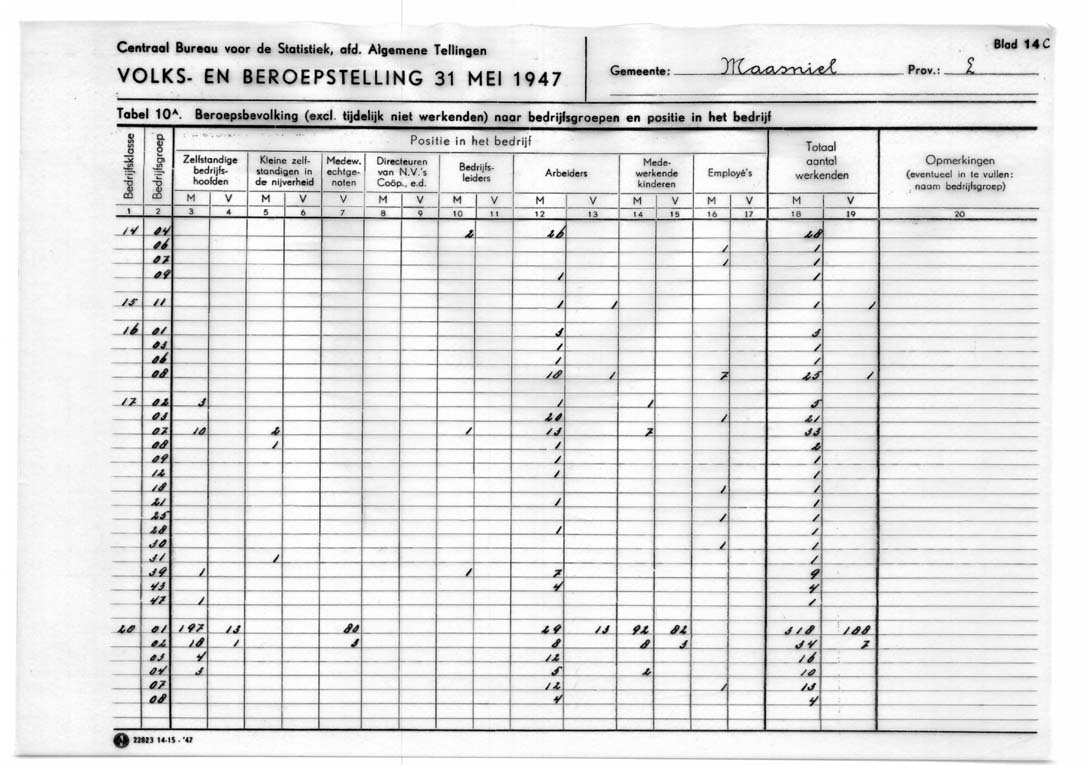 Centraal Bureau voor de Statistiek, afd. Algemene Tellingen
Blad 14C
VOLKS- EN BEROEPSTELLING 31 MEI 1947
Gemeente: Maasniel Prov.: L
Tabel 10A. Beroepsbevolking (excl. tijdelijk niet werkenden) naar bedrijfsgroepen en positie in het bedrijf
Bedrijfsklasse Bedrijfsgroep Positie in het bedrijf Totaal aantal werkenden Opmerkingen (eventueel in te vullen: naam bedrijfsgroep)
Zelfstandige bedrijfshoofden Kleine zelfstandigen in de nijverheid Medew. echtgenoten Directeuren van N.V.'s Coöp., e.d. Bedrijfsleiders Arbeiders Medewerkende kinderen Employé's
M V M V V M V M V M V M V M V M V
1 2 3 4 5 6 7 8 9 10 11 12 13 14 15 16 17 18 19 20
14 04 2 26 28
06 1 1
07 1 1
09 1 1
15 11 1 1 1 1
16 01 3 3
03 1 1
06 1 1
08 18 1 7 25 1
17 02 3 1 1 5
03 20 1 21
07 10 2 1 13 7 33
08 1 1 2
09 1 1
12 1 1
18 1 1
21 1 1
25 1 1
28 1 1
30 1 1
31 1 1
39 1 1 7 9
43 4 4
47 1 1
20 01 197 13 80 29 13 92 82 318 188
02 18 1 3 8 8 3 34 7
03 4 12 16
04 3 5 2 10
07 12 1 13
08 4 4
22823 14-15-'47